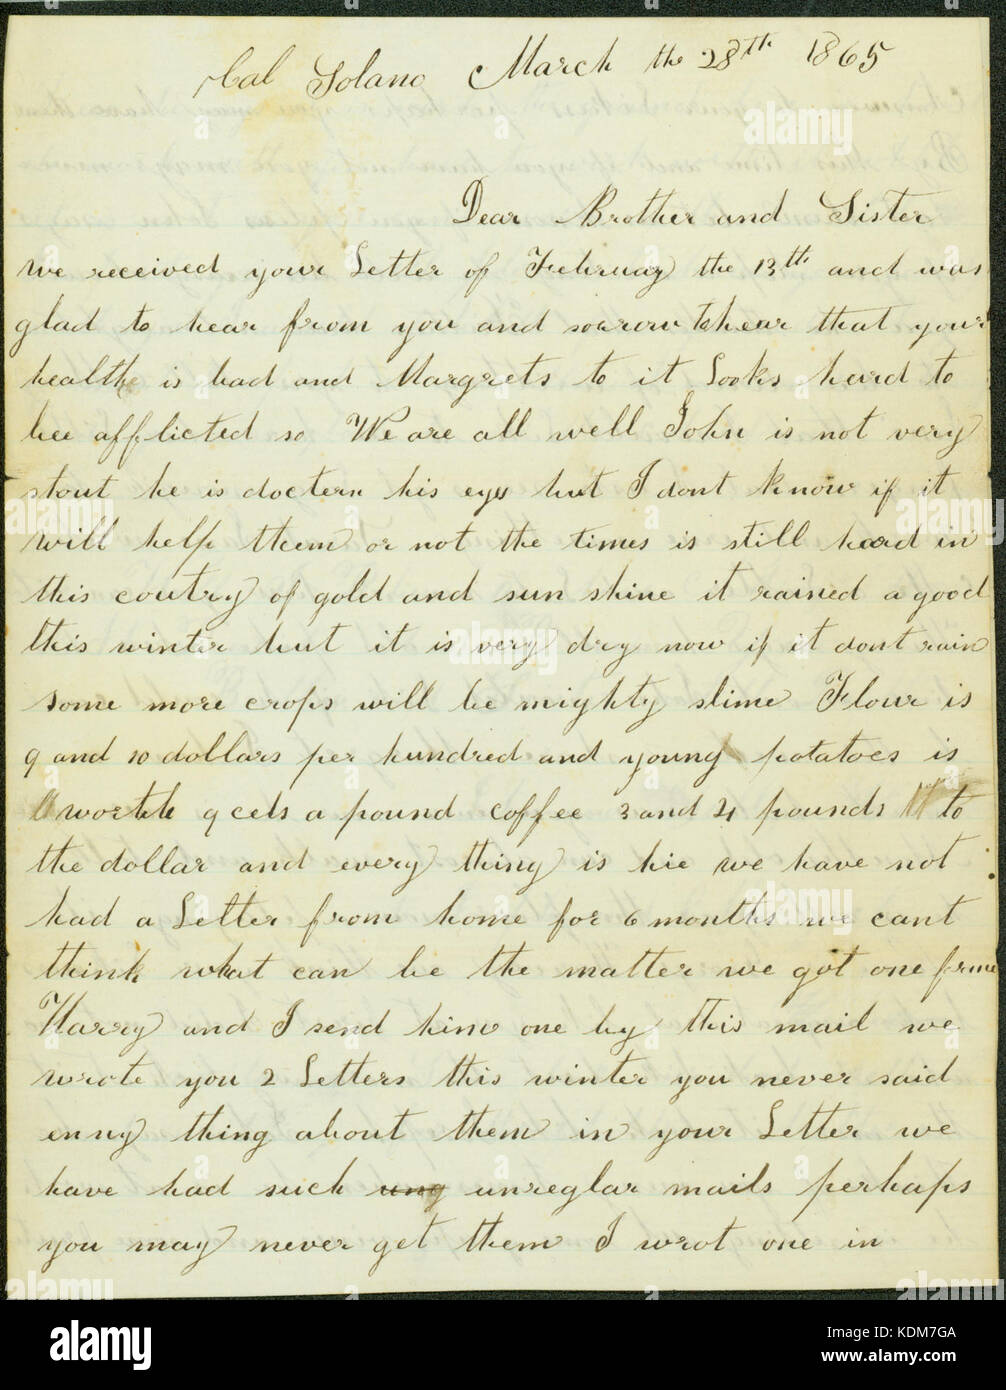 Cal Solano March the 28th 1865
Dear Brother and Sister
we received your Letter of February the 13th and was
glad to hear from you and sorrow to hear that your
healthe is bad and Margrets to it Looks heard to
bee afflicted so We are all well John is not very
stout he is doctern his eys but I dont know if it
will help them or not the times is still heard in
this coutry of gold and sun shine it rained a good
this winter but it is very dry now if it dont rain
some more crops will be mighty slime Flour is
9 and 10 dollars per hundred and young potatoes is
worth 9 cets a pound coffee 3 and 4 pounds to
the dollar and every thing is hie we have not
had a Letter from home for 6 months we cant
think what can be the matter we got one frme
Harry and I send him one by this mail we
wrote you 2 Letters this winter you never said
enny thing about them in your Letter we
have had such ung unreglar mails perhaps
you may never get them I wrot one in
a alamy
alamy
Image ID: KDM7GA
www.alamy.com